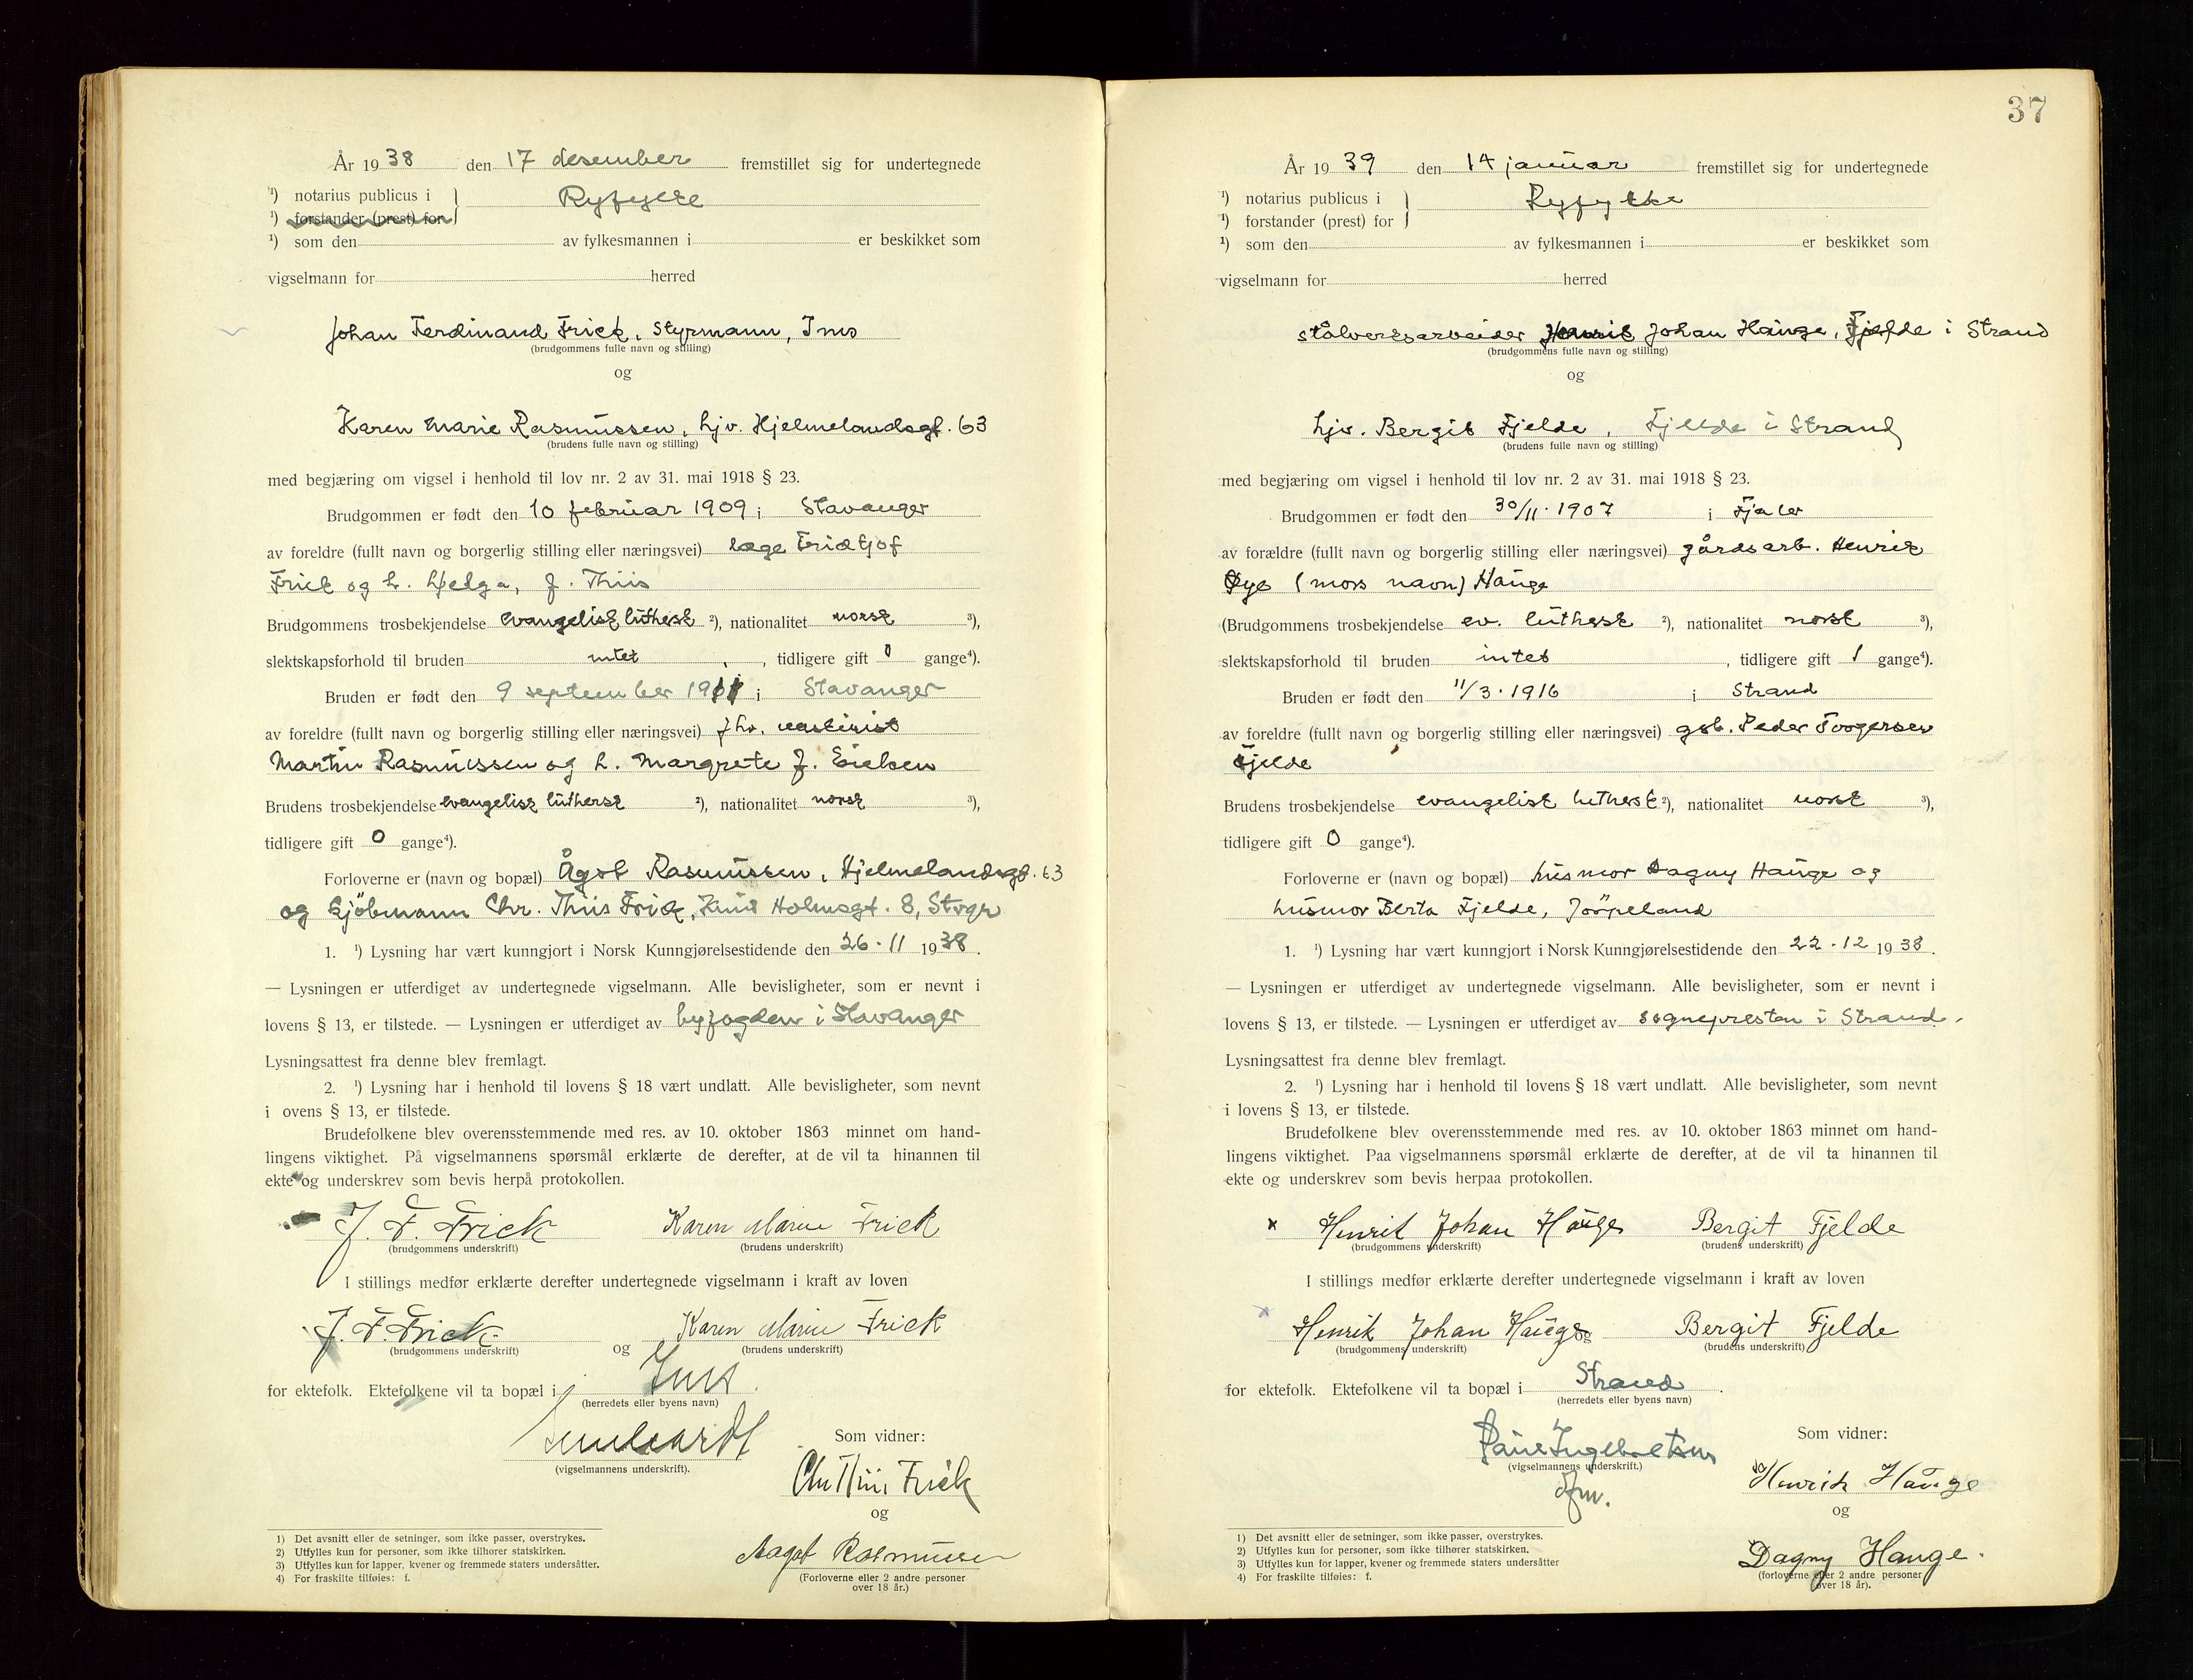 År 1938 den 17 desember fremstillet sig for undertegnede
¹) notarius publicus i } Ryfylke
¹) forstander (prest) for
¹) som den av fylkesmannen i er beskikket som
vigselmann for herred
Johan Ferdinand Frick, Styrmann, Ims
(brudgommens fulle navn og stilling)
og
Karen Marie Rasmussen, hjv. Hjelmelandsgt. 63
(brudens fulle navn og stilling)
med begjæring om vigsel i henhold til lov nr. 2 av 31. mai 1918 § 23.
Brudgommen er født den 10 februar 1909 i Stavanger
av foreldre (fullt navn og borgerlig stilling eller næringsvei) læge Fridtjof
Frick og h. Helga, f. Thiis
Brudgommens trosbekjendelse evangelisk luthersk ²), nationalitet norsk ³),
slektskapsforhold til bruden intet , tidligere gift 0 gange⁴).
Bruden er født den 9 september 1911 i Stavanger
av foreldre (fullt navn og borgerlig stilling eller næringsvei) fhv. maskinist
Martin Rasmussen og h. Margrete f. Eielsen
Brudens trosbekjendelse evangelisk luthersk ²), nationalitet norsk ³),
tidligere gift 0 gange⁴).
Forloverne er (navn og bopæl) Ågot Rasmussen, Hjelmelandsgt. 63
og sjömann Chr. Thiis Frick, Knud Holmsgt. 8, Stvgr
1. ¹) Lysning har vært kunngjort i Norsk Kunngjørelsestidende den 26.11 1938.
— Lysningen er utferdiget av undertegnede vigselmann. Alle bevisligheter, som er nevnt i
lovens § 13, er tilstede. — Lysningen er utferdiget av byfogden i Stavanger
Lysningsattest fra denne blev fremlagt.
2. ¹) Lysning har i henhold til lovens § 18 vært undlatt. Alle bevisligheter, som nevnt
i ovens § 13, er tilstede.
Brudefolkene blev overensstemmende med res. av 10. oktober 1863 minnet om hand-
lingens viktighet. På vigselmannens spørsmål erklærte de derefter, at de vil ta hinannen til
ekte og underskrev som bevis herpå protokollen.
J. F. Frick Karen Marie Frick
(brudgommens underskrift) (brudens underskrift)
I stillings medfør erklærte derefter undertegnede vigselmann i kraft av loven
J. F. Frick og Karen Marie Frick
(brudgommens underskrift) (brudens underskrift)
for ektefolk. Ektefolkene vil ta bopæl i Ims.
(herredets eller byens navn)
(vigselmannens underskrift).
Som vidner:
Chr Thiis Frick
og
Aagot Rasmussen
(Forloverne eller 2 andre personer
over 18 år.)
1) Det avsnitt eller de setninger, som ikke passer, overstrykes.
2) Utfylles kun for personer, som ikke tilhører statskirken.
3) Utfylles kun for lapper, kvener og fremmede staters undersåtter.
4) For fraskilte tilføies: f.
37
År 1939 den 14 januar fremstillet sig for undertegnede
¹) notarius publicus i } Ryfylke
¹) forstander (prest) for
¹) som den av fylkesmannen i er beskikket som
vigselmann for herred
stålverksarbeider Henrik Johan Hauge, Fjelde i Strand
(brudgommens fulle navn og stilling)
og
hjv. Bergit Fjelde, Fjelde i Strand
(brudens fulle navn og stilling)
med begjæring om vigsel i henhold til lov nr. 2 av 31. mai 1918 § 23.
Brudgommen er født den 30/11. 1907 i Fjaler
av forældre (fullt navn og borgerlig stilling eller næringsvei) gårdsarb. Henrik
Øye (mors navn) Hauge
(Brudgommens trosbekjendelse ev. luthersk ²), nationalitet norsk ³),
slektskapsforhold til bruden intet , tidligere gift 1 gange⁴).
Bruden er født den 11/3. 1916 i Strand
av foreldre (fullt navn og borgerlig stilling eller næringsvei) gsb. Peder Torgersen
Fjelde
Brudens trosbekjendelse evangelisk luthersk ²), nationalitet norsk ³),
tidligere gift 0 gange⁴).
Forloverne er (navn og bopæl) husmor Dagny Hauge og
husmor Berta Fjelde, Jörpeland
1. ¹) Lysning har vært kunngjort i Norsk Kunngjørelsestidende den 22.12 1938.
— Lysningen er utferdiget av undertegnede vigselmann. Alle bevisligheter, som er nevnt i
lovens § 13, er tilstede. — Lysningen er utferdiget av sognepresten i Strand.
Lysningsattest fra denne blev fremlagt.
2. ¹) Lysning har i henhold til lovens § 18 vært undlatt. Alle bevisligheter, som nevnt
i lovens § 13, er tilstede.
Brudefolkene blev overensstemmende med res. av 10. oktober 1863 minnet om hand-
lingens viktighet. Paa vigselmannens spørsmål erklærte de derefter, at de vil ta hinannen til
ekte og underskrev som bevis herpaa protokollen.
x Henrik Johan Hauge Bergit Fjelde
(brudgommens underskrift) (brudens underskrift)
I stillings medfør erklærte derefter undertegnede vigselmann i kraft av loven
x Henrik Johan Hauge og Bergit Fjelde
(brudgommens underskrift) (brudens underskrift)
for ektefolk. Ektefolkene vil ta bopæl i Strand.
(herredets eller byens navn)
Ingebretsen
(vigselmannens underskrift.)
dfm.
Som vidner:
Henrik Hauge
og
Dagny Hauge.
(forloverne eller 2 andre personer
over 18 år).
1) Det avsnitt eller de setninger, som ikke passer, overstrykes.
2) Utfylles kun for personer, som ikke tilhører statskirken.
3) Utfylles kun for lapper, kvener og fremmede staters undersåtter
4) For fraskilte tilføies: f.